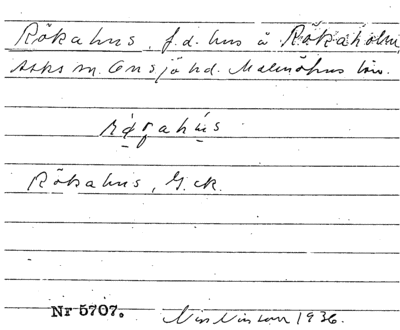 Rökahus, f.d. hus å Rökaholm,
Asks sn. Onsjö hd. Malmöhus län.
rǿ̣gahú̱s
Rökahus, G.ek.
Nr 5707. Nils Nilsson 1936.